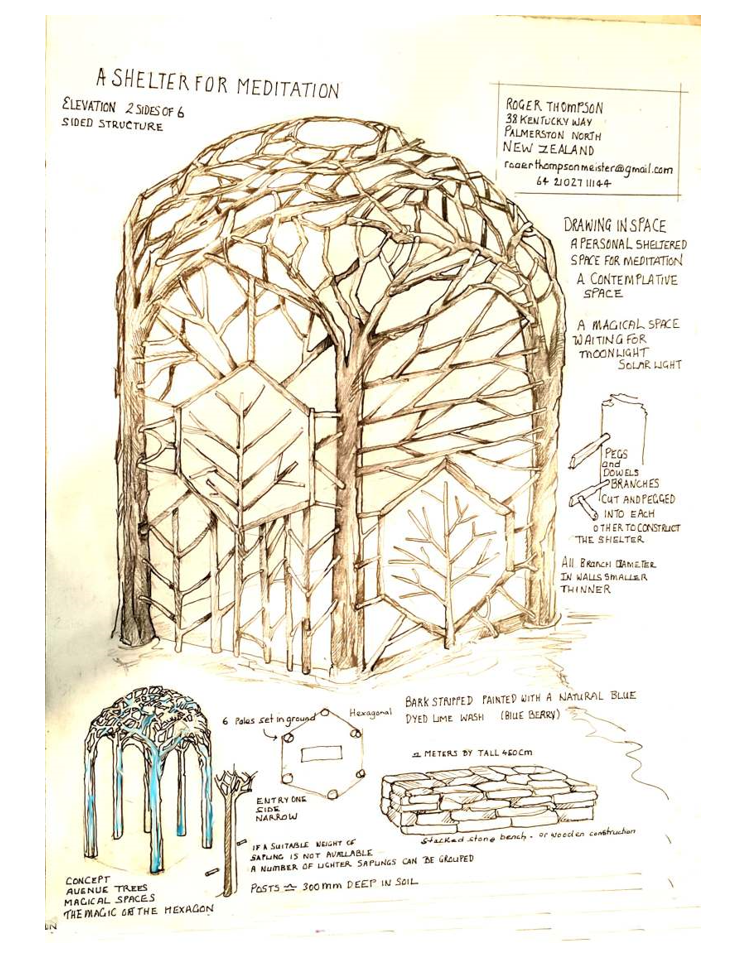 A SHELTER FOR MEDITATION
ELEVATION 2 SIDES OF 6
SIDED STRUCTURE
ROGER THOMPSON
38 KENTUCKY WAY
PALMERSTON NORTH
NEW ZEALAND
rogerthompsonmeister@gmail.com
64 21027 11144
DRAWING IN SPACE
A PERSONAL SHELTERED
SPACE FOR MEDITATION
A CONTEMPLATIVE
SPACE
A MAGICAL SPACE
WAITING FOR
MOONLIGHT
SOLAR LIGHT
PEGS
and
DOWELS
BRANCHES
CUT AND PEGGED
INTO EACH
OTHER TO CONSTRUCT
THE SHELTER
All BRANCH DIAMETER
IN WALLS SMALLER
THINNER
BARK STRIPPED PAINTED WITH A NATURAL BLUE
DYED LIME WASH (BLUE BERRY)
6 Poles set in ground
Hexagonal
ENTRY ONE
SIDE
NARROW
METERS BY TALL 460cm
Stacked stone bench. or wooden construction
IF A SUITABLE WEIGHT OF
SAPLING IS NOT AVAILABLE
A NUMBER OF LIGHTER SAPLINGS CAN BE GROUPED
POSTS ≏ 300mm DEEP IN SOIL
CONCEPT
AVENUE TREES
MAGICAL SPACES
THE MAGIC OF THE HEXAGON